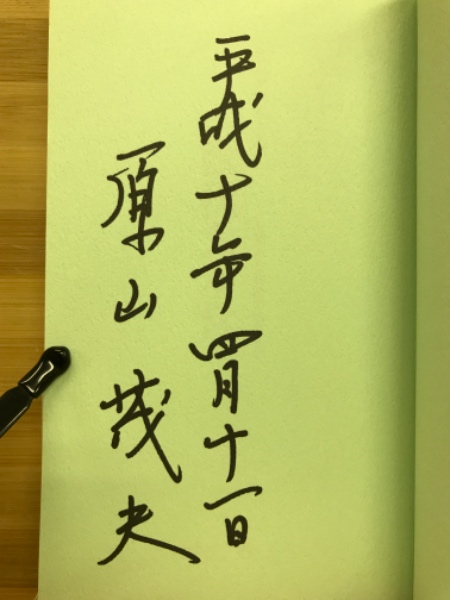 平成十年四月十一日
原山茂夫